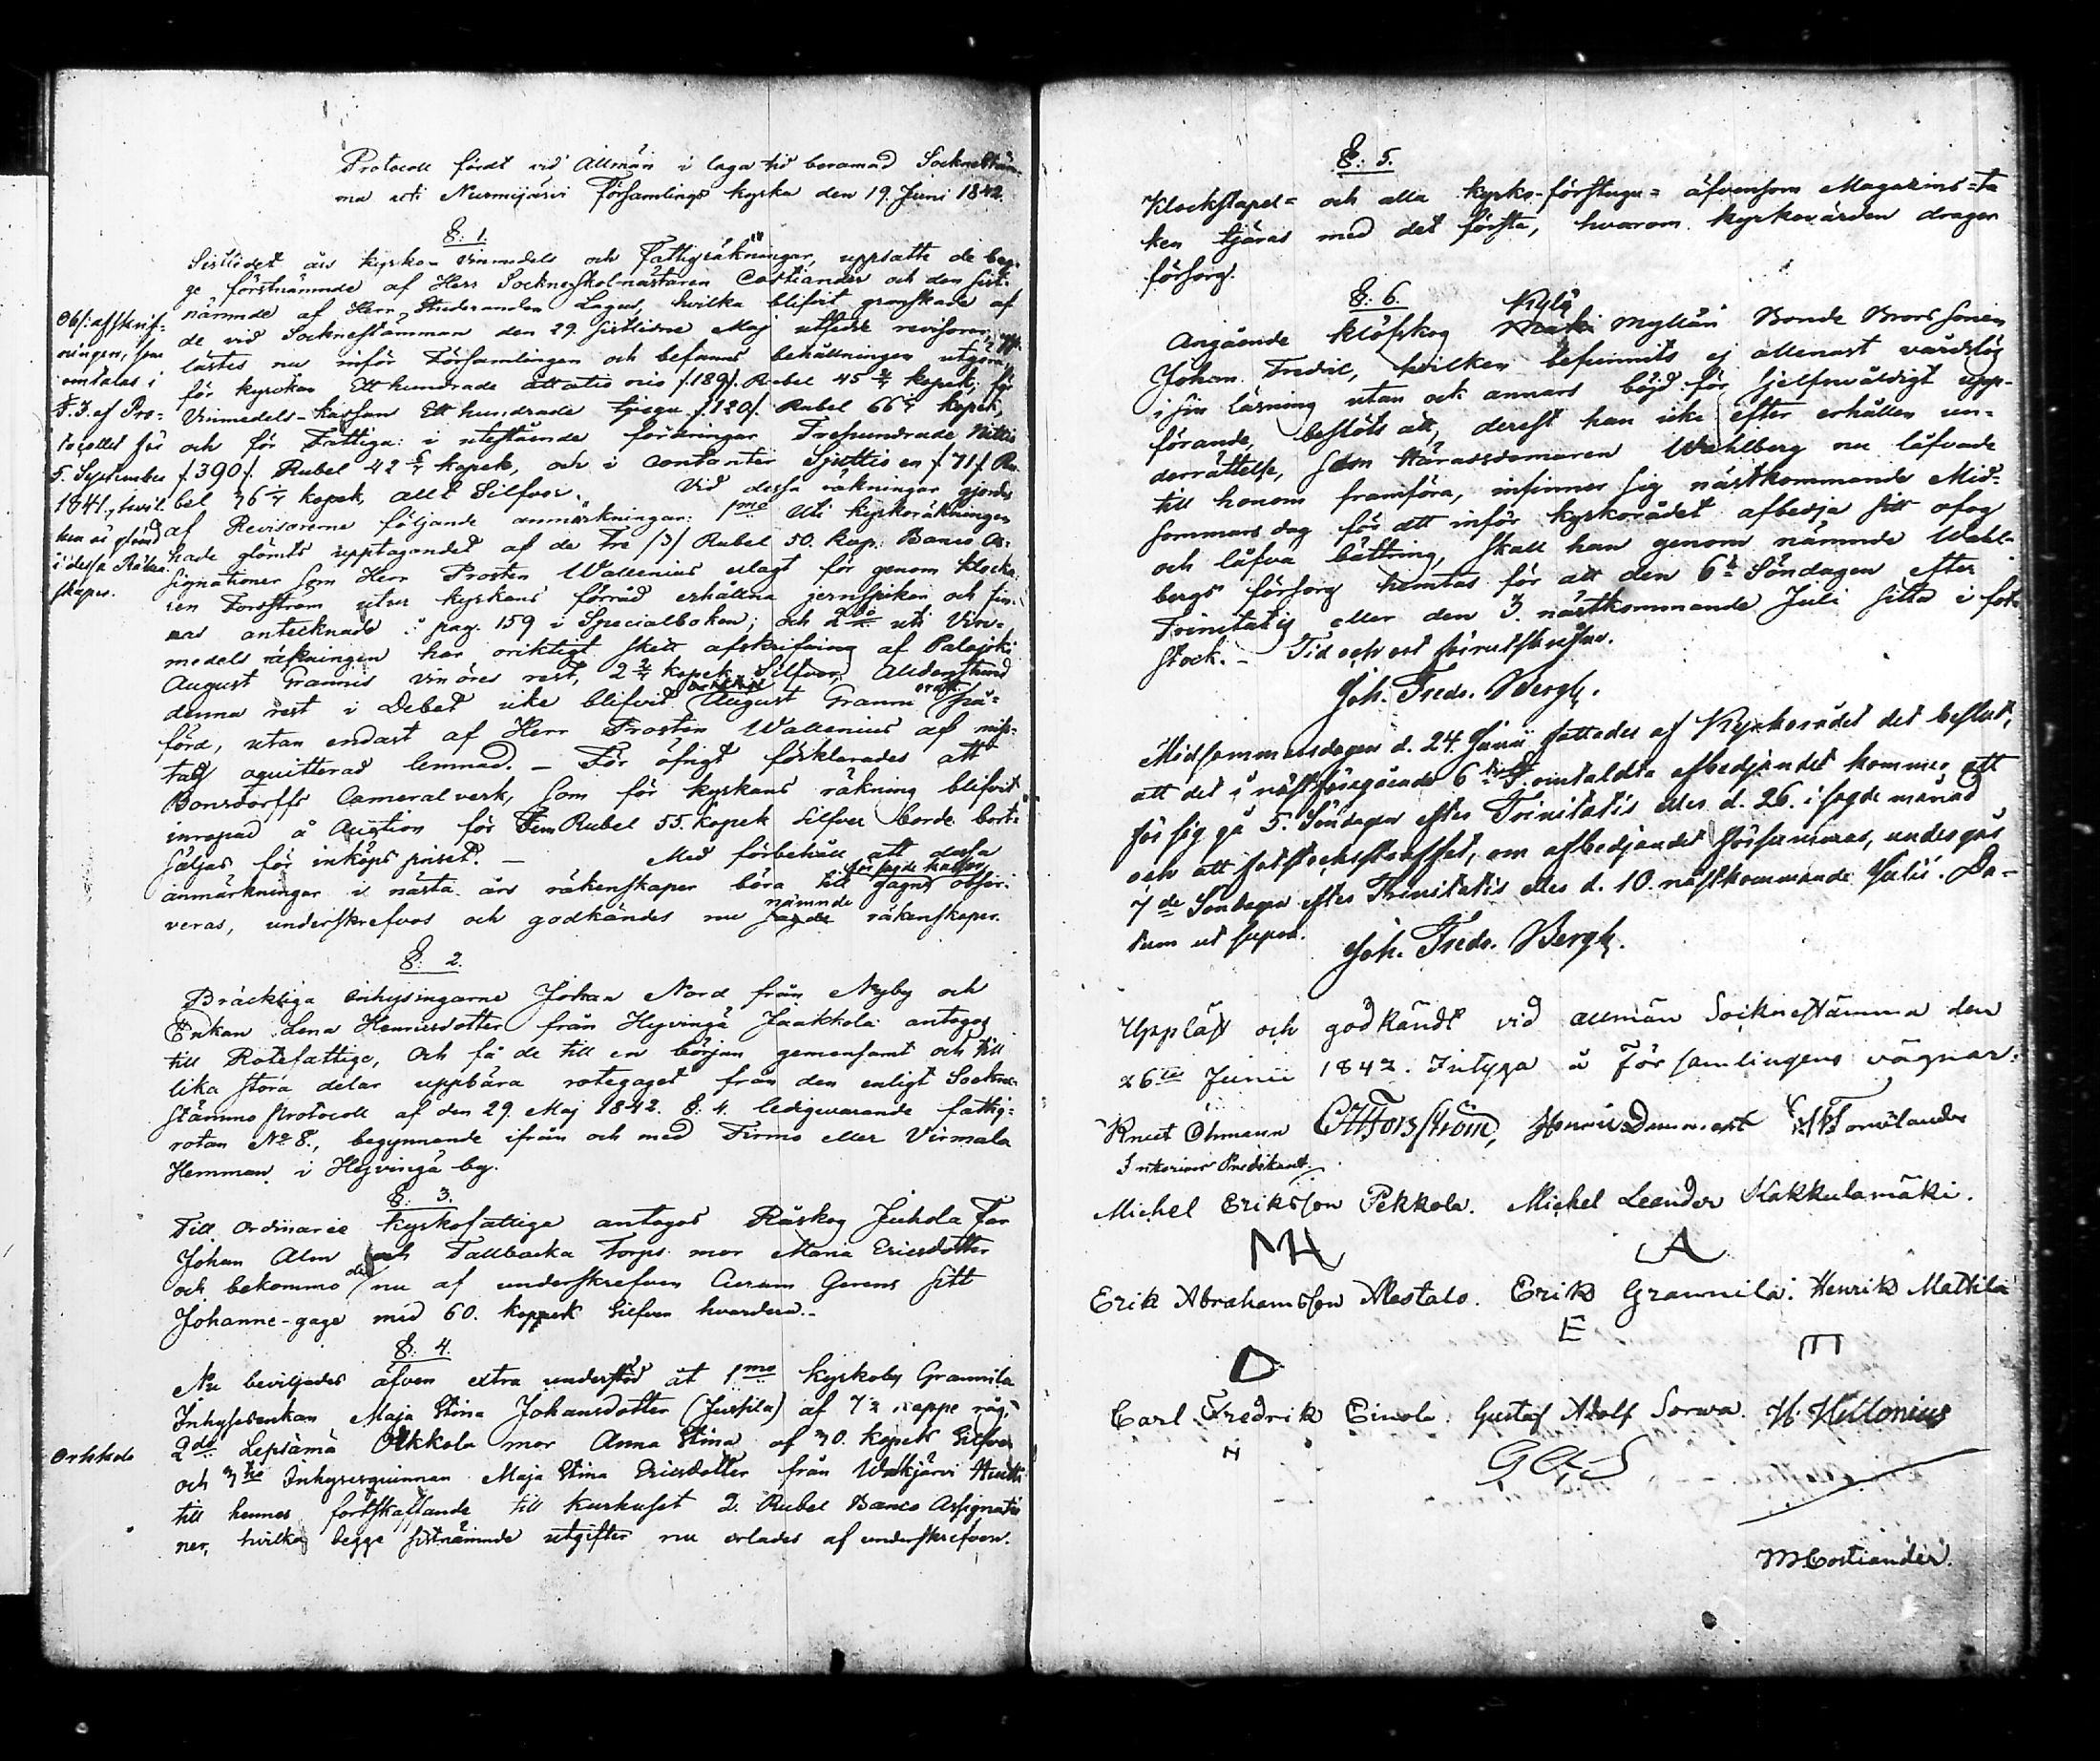 Protocoll fördt vid Allmän i laga tid beramad Sockneståm-
ma uti Nurmijärvi Församlings kyrka den 19. Juni 1842.
§: 1.
Sistlidet års kyrko- Vinmedels och Fattigräkningar, uppsatte de beg-
ge förstnämnde af Herr Sockneskolmästaren Costiander och den sist-
nämnde af Herr Studeranden Lagus, hvilka blifvit granskade af
de vid Socknestämman den 29. sistlidne Maj utsedde revisorer, upp-
lästes nu inför Församlingen och befanns behållningen utgöra
för kyrkan Ett hundrade åttatio nio /.189/. Rubel 45 kopek, för
Vinmedels-kassan Ett hundrade tjugu /.120/. Rubel 66 kopek,
och för Fattiga: i utestående fordringar Trehundrade Nittio
/.390/. Rubel 42 kopek, och i contanter Sjuttio en /.71/. Ru-
bel 36 kopek, allt Silfver. Vid dessa räkningar gjordes
af Revisorerne följande anmärkningar: 1mo Uti kyrkoräkningen
hade glömts upptagandet af de Tre /3/ Rubel 50. kop: Banco As-
signationer som Herr Prosten Wallenius erlagt för genom klocka-
ren Forsström utur kyrkans förråd erhållna jernspikar och fin-
nas antecknade å pag. 159 i Specialboken; och 2do uti Vin-
medels räkningen har oriktigt skett afskrifning af Palojoki
August Grannis vinöres rest, 2 kopek Silfver, Alldenstund
denna rest i Debet icke blifvit August Granni på-
förd, utan endast af Herr Prosten Wallenius af miss-
tag oquitterad lemnad. — För öfrigt förklarades att
Bonsdorffs Cameralverk, som för kyrkans räkning blifvit
inropad å Auction för Fem Rubel 55. kopek Silfver borde bort-
säljas för inköpspriset. — Med förbehåll att dessa
anmärkningar i nästa års räkenskaper böra till försagde kassors gagn obser-
veras, underskrefvos och godkändes nu nämnde räkenskaper.
Obs: afskrif-
ningen, som
omtalas i
§. 3. af Pro-
tocollet för
5. September
1841, hvil-
ken är glömd
i dessa Räken-
skaper.
§: 2.
Bräckliga Inhysingarne Johan Nord från Nyby och
Enkan Lena Henricsdotter från Hyvingä Jaakkola antogos
till Rotefattige, Och få de till en början gemensamt och till
lika stora delar uppbära rotegaget från den enligt Sockne-
stämmo Protocoll af den 29. Maj 1842. §: 4. ledigvarande fattig-
rotan No 8., begynnande ifrån och med Tirmo eller Virmala
Hemman i Hyvingä by.
§: 3.
Till Ordinarie kyrkofattige antogos Räskog Juhola Far
Johan Alm och Tallbacka Torps mor Maria Ericsdotter
och bekommo de nu af underskrefven Gerens sitt
Johanne-gage med 60. kopek Silfver hvardera.-
§: 4.
Nu beviljades äfven extra understöd åt 1mo Kyrkoby Grannila
Inhysesenkan Maja Stina Johansdotter (Jussila) af 7½ kappe råg,
2do Lepsämä Ollkkola mor Anna Stina af 30. kopek Silfver
och 3tio Inhysesqvinnan Maja Stina Ericsdotter från Waakjärvi
till hennes fortskaffande till kurhuset 2. Rubel Banco Assignatio-
ner, hvilka begge sistnämnde utgifter nu erlades af underskrefven.
§: 5.
Klockstapel- och alla kyrko-förstugu- äfvensom Magazins-ta-
ken tjäras med det första, hvarom kyrkovärden drager
försorg.
§: 6.
Angående Klöfskog Kylä Mylläri Bonde Brorssonen
Johan Fredric, hvilken befunnits ej allenast vårdslös
i sin läsning utan ock annars böjd för sjelfsvåldigt upp-
förande, beslöts att, derest han icke efter erhållen un-
derrättelse, som Häradsdomaren Wahlberg nu låfvade
till honom framföra, infinner sig nästkommande Mid-
sommars dag för att inför kyrkorådet afbedja sitt ofog
och låfva bättring, skall han genom nämnde Wahl-
bergs försorg hemtas för att den 6te Söndagen efter
Trinitatis eller den 3. nästkommande Juli sitta i fot-
stock. - Tid och ort förutskrifne.
Joh. Fredr. Bergh.
Midsommarsdagen d. 24. Junii fattades af Kyrkorådet det beslut,
att det i nästföregående 6te §. omtaldta afbedjandet kommer att
för sig gå 5. Söndagen efter Trinitatis eller d. 26. i sagde månad
och att fotstocksstraffet, om afbedjandet försummas, undergås
7de Söndagen efter Trinitatis eller d. 10. nästkommande Julii. Da-
tum ut supra.
Joh. Fredr. Bergh.
Uppläst och godkändt vid allmän Socknestämma den
26te Junii 1842. Intyga å Församlingens vägnar:
Knut Öhmann CHForsström,
Interims Predikant.
Michel Eriksson Pekkola. Michel Leander Kakkulamäki.
MH A
Erik Abrahamsson Alestalo. Erik Grannila. Henrik Mattila
D E m
Carl Fredrik Eimola. Gustaf Adolf Sorwa. H Hellonius
H GAS
MCostiander.